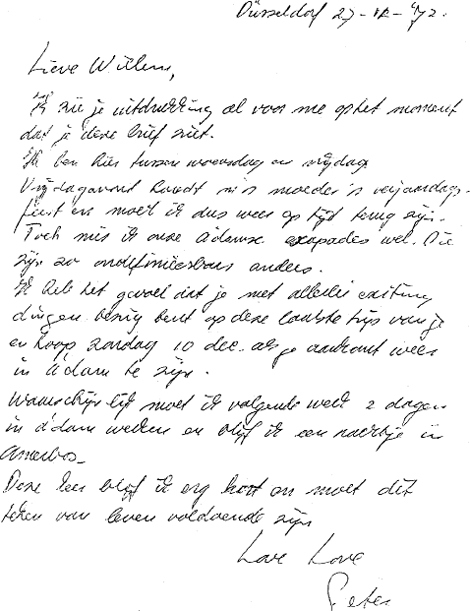 Düsseldorf 27-
Lieve Willem,
Ik zie je uitdrukking al voor me op het moment
dat je deze brief ziet.
Ik ben hier tussen woensdag en vrijdag
Vrijdagavond mijn moeder's verjaardags-
feest en moet ik dus weer op tijd terug zijn.
Toch mis ik onze A'damse escapades wel. Die
zijn zo ondefinieerbaar anders.
Ik heb het gevoel dat je met allerlei exciting
dingen bezig bent op deze laatste trip van je
en hoop zondag 10 dec. als je aankomt weer
in A'dam te zijn.
Waarschijnlijk moet ik volgende week 2 dagen
in A'dam werken en blijf ik een nachtje in
Deze keer blijf ik erg kort en moet dit
teken van leven voldoende zijn
Love Love
Peter